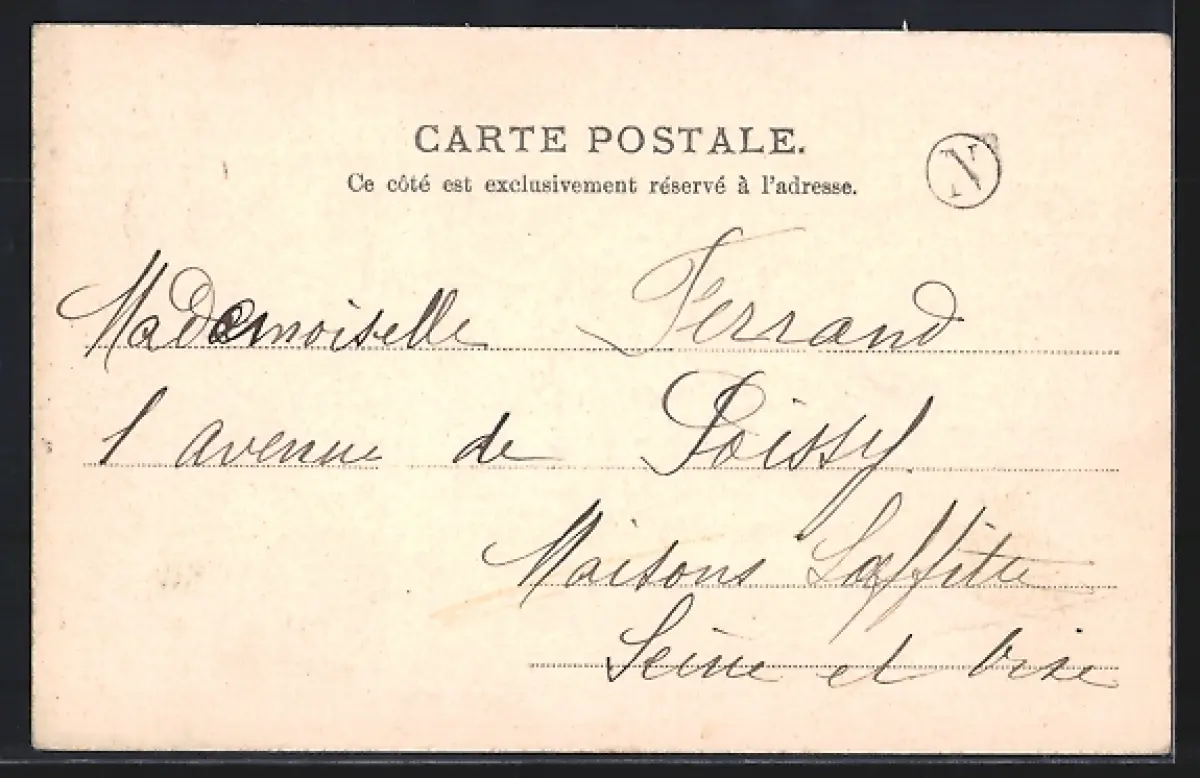 CARTE POSTALE.
Ce côté est exclusivement réservé à l'adresse.
N
Mademoiselle Ferrand
1 avenue de Poissy
Maisons Laffitte
Seine et Oise